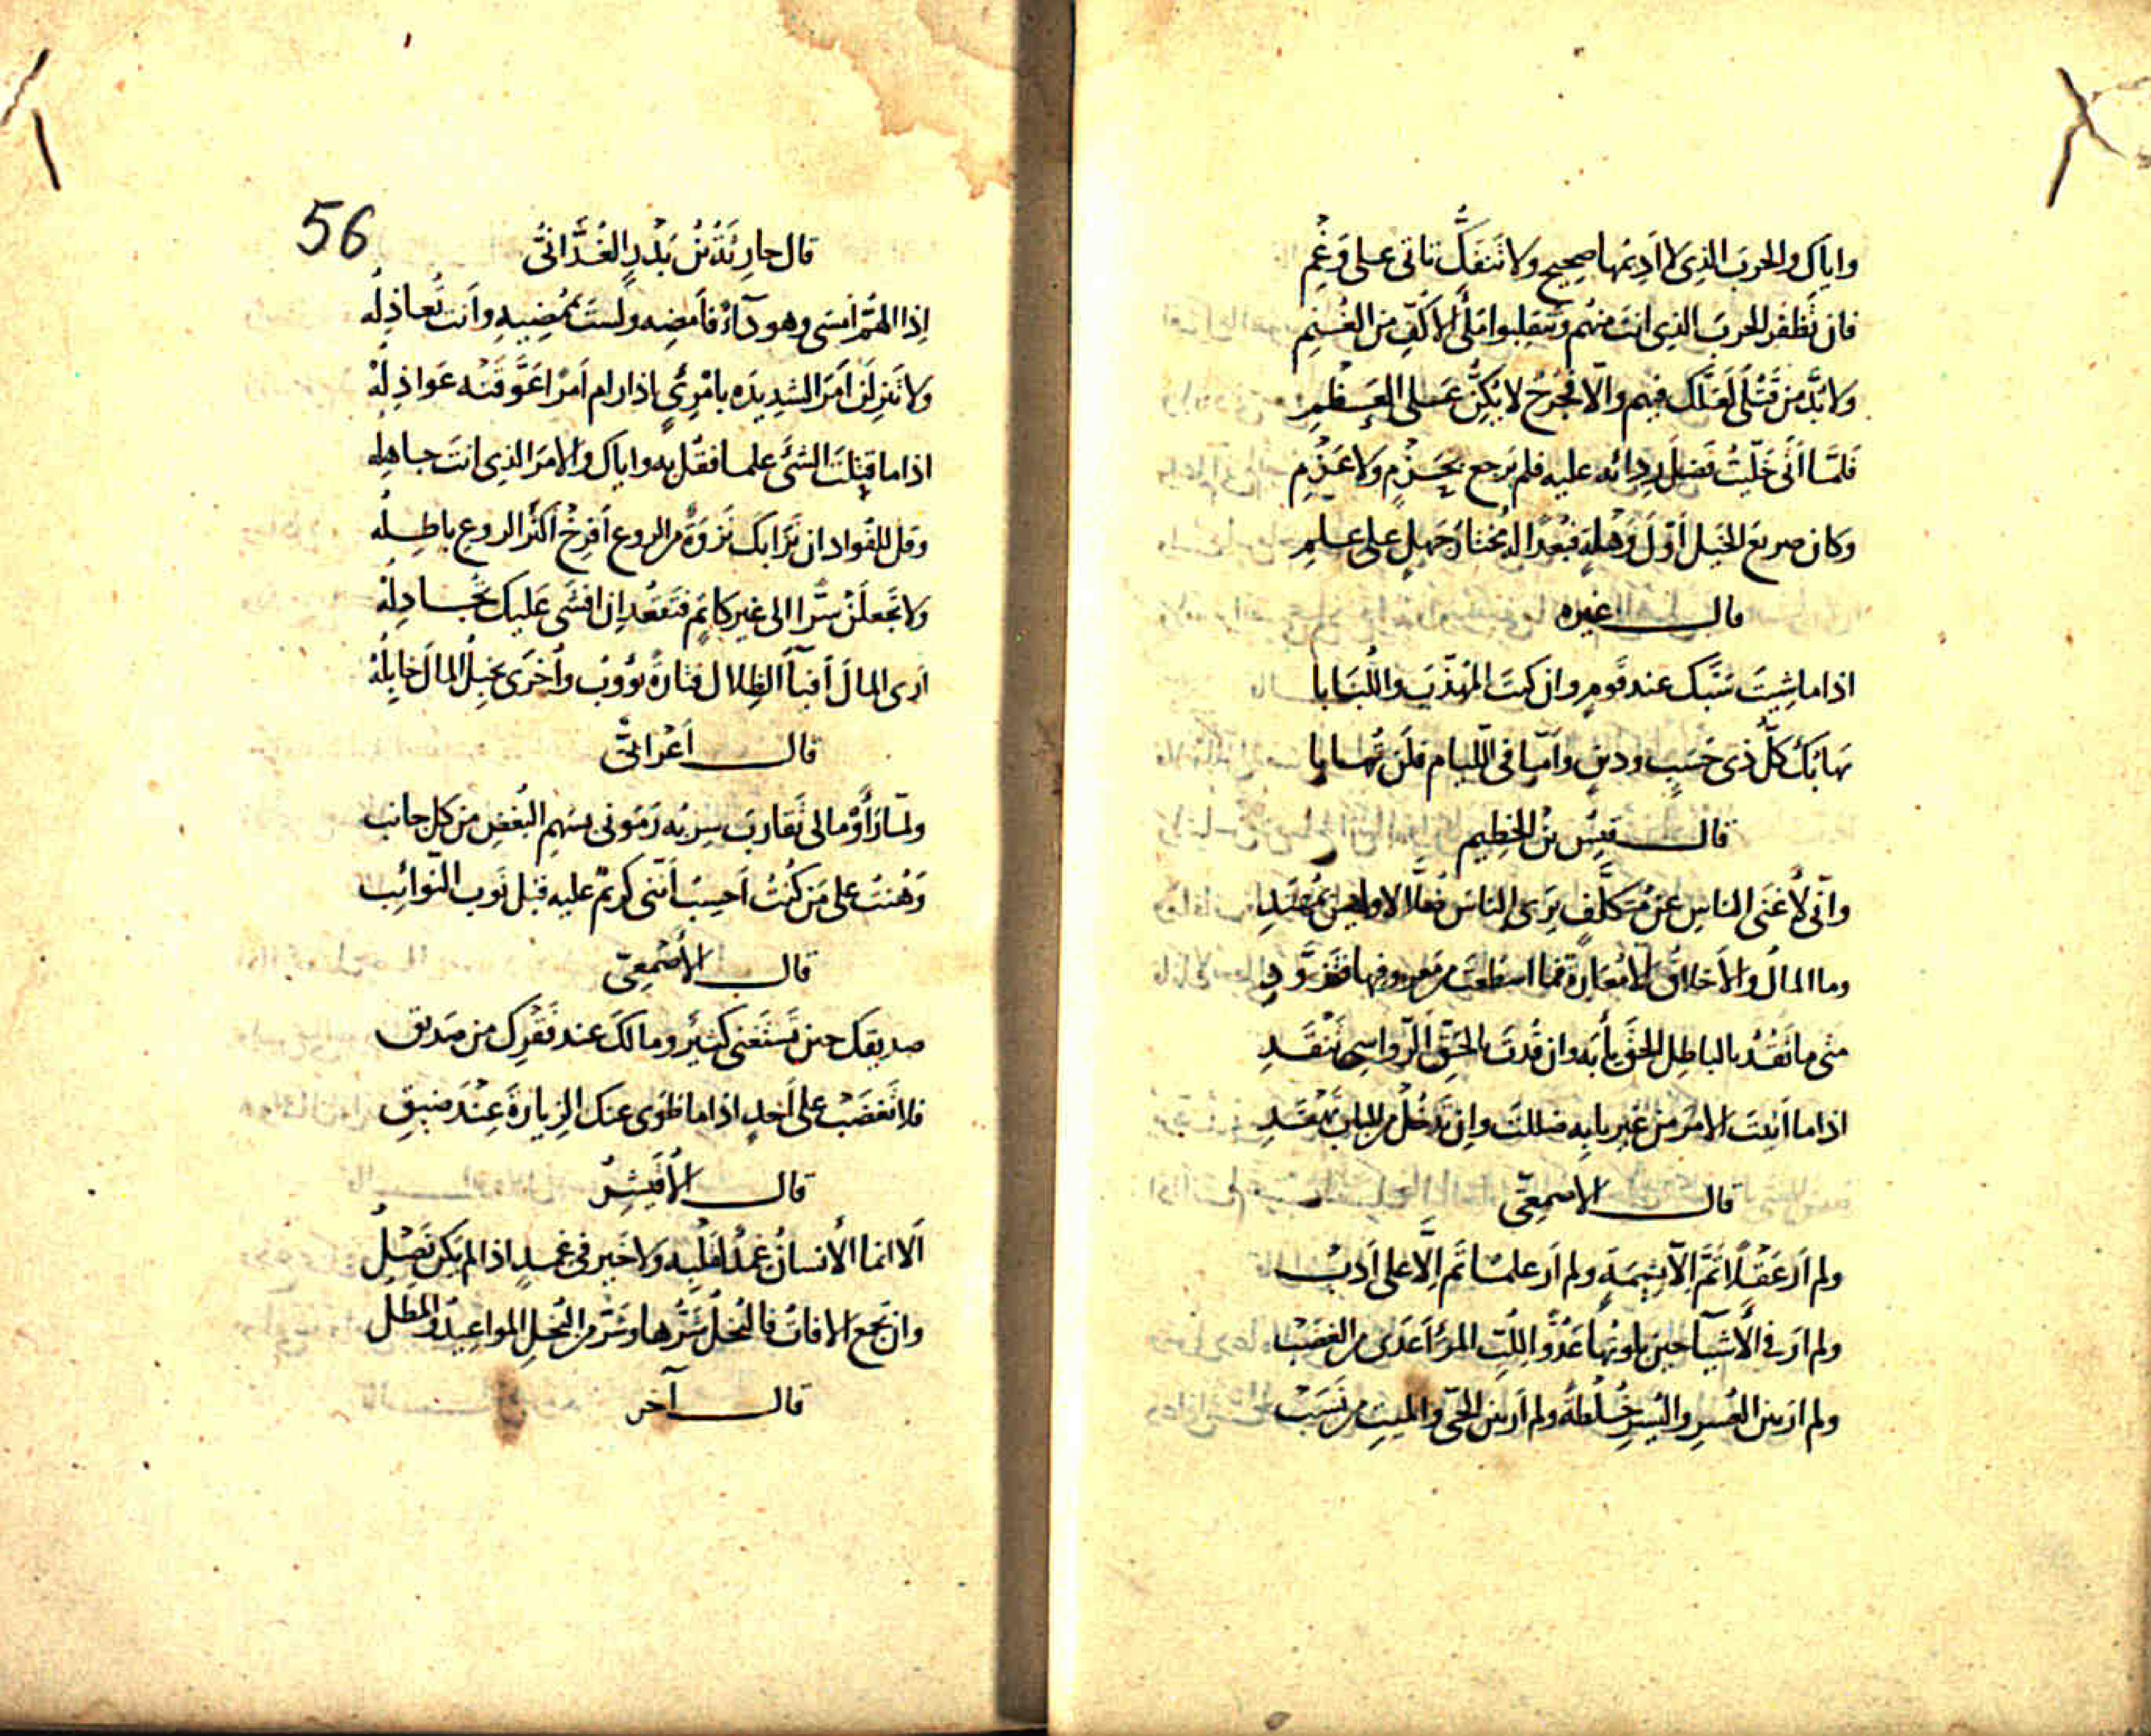 واياك والحرب الذى لا اديمها صحيح ولا تنفك تاتى على رغم
فان تظفر الحرب الذى انت منهم وتنقلبوا ملأى الاكف من الغنم
ولا بد من قتلى لعلك فيهم والا فجرح لا يكن على العظم
فلما أتى خليت فضل ردائه عليه فلم يرجع بحزم ولا عزم
وكان صريع الخيل أول وهلة فبعدا له مختار جهل على علم
قال غيره
اذا ما شيت سبك عند قوم وان كنت المهذب واللبابا
تهابك كل ذى حسب ودين واما فى الليام فلن تهابا
قال قيس بن الخطيم
وانى لأغنى الناس عن متكلف يرى الناس ضلالا وليس بمهتد
وما المال والأخلاق الا معارة فما اسطعت من معروفها فتزود
متى ما تقد بالباطل الحق يأبه وان قدت بالحق الرواسى تنقد
اذا ما أتيت الامر من غير بابه ضللت وان تدخل من الباب تهتد
قال الاصمعى
ولم أر عقلا تم الا بشيمة ولم أر علما تم الا على أدب
ولم ار فى الأشيآ حين بلوتها عدوا للب المرء اعدى من الغضب
ولم ار بين العسر واليسر خلطة ولم أر بين الحى والميت من نسب
56
قال حارثة بن بدر الغدانى
اذا الهم أمسى وهو دآء فأمضه ولست بممضيه وأنت تعاذله
ولا تنزلن أمر الشديدة بامرئ اذا رام امرا عوقته عواذله
اذا ما قتلت الشئ علما فقل به واياك والامر الذى انت جاهله
وقل للفواد ان نزا بك نزوة من الروع أفرخ أكثر الروع باطله
ولا تجعلن سرا الى غير كاتم فتقعد إن افشى عليك تجادله
أرى المال أفيآء الظلال فتارة يؤوب وأخرى يخبل المال خابله
قال أعرابى
ولما رأوا مالى تقارب سربه رمونى بسهم البغض من كل جانب
وهنت على من كنت احسب أننى كريم عليه قبل نوب النوائب
قال الأصمعى
صديقك حين تستغنى كثير ومالك عند فقرك من صديق
فلا تغضب على أحد اذا ما طوى عنك الزيارة عند ضيق
قال الأقيشر
ألا انما الأنسان غمد لقلبه ولا خير فى غمد اذا لم يكن نصل
وان تجمع الافات فالبخل شرها وشر من البخل المواعيد والمطل
قال آخر